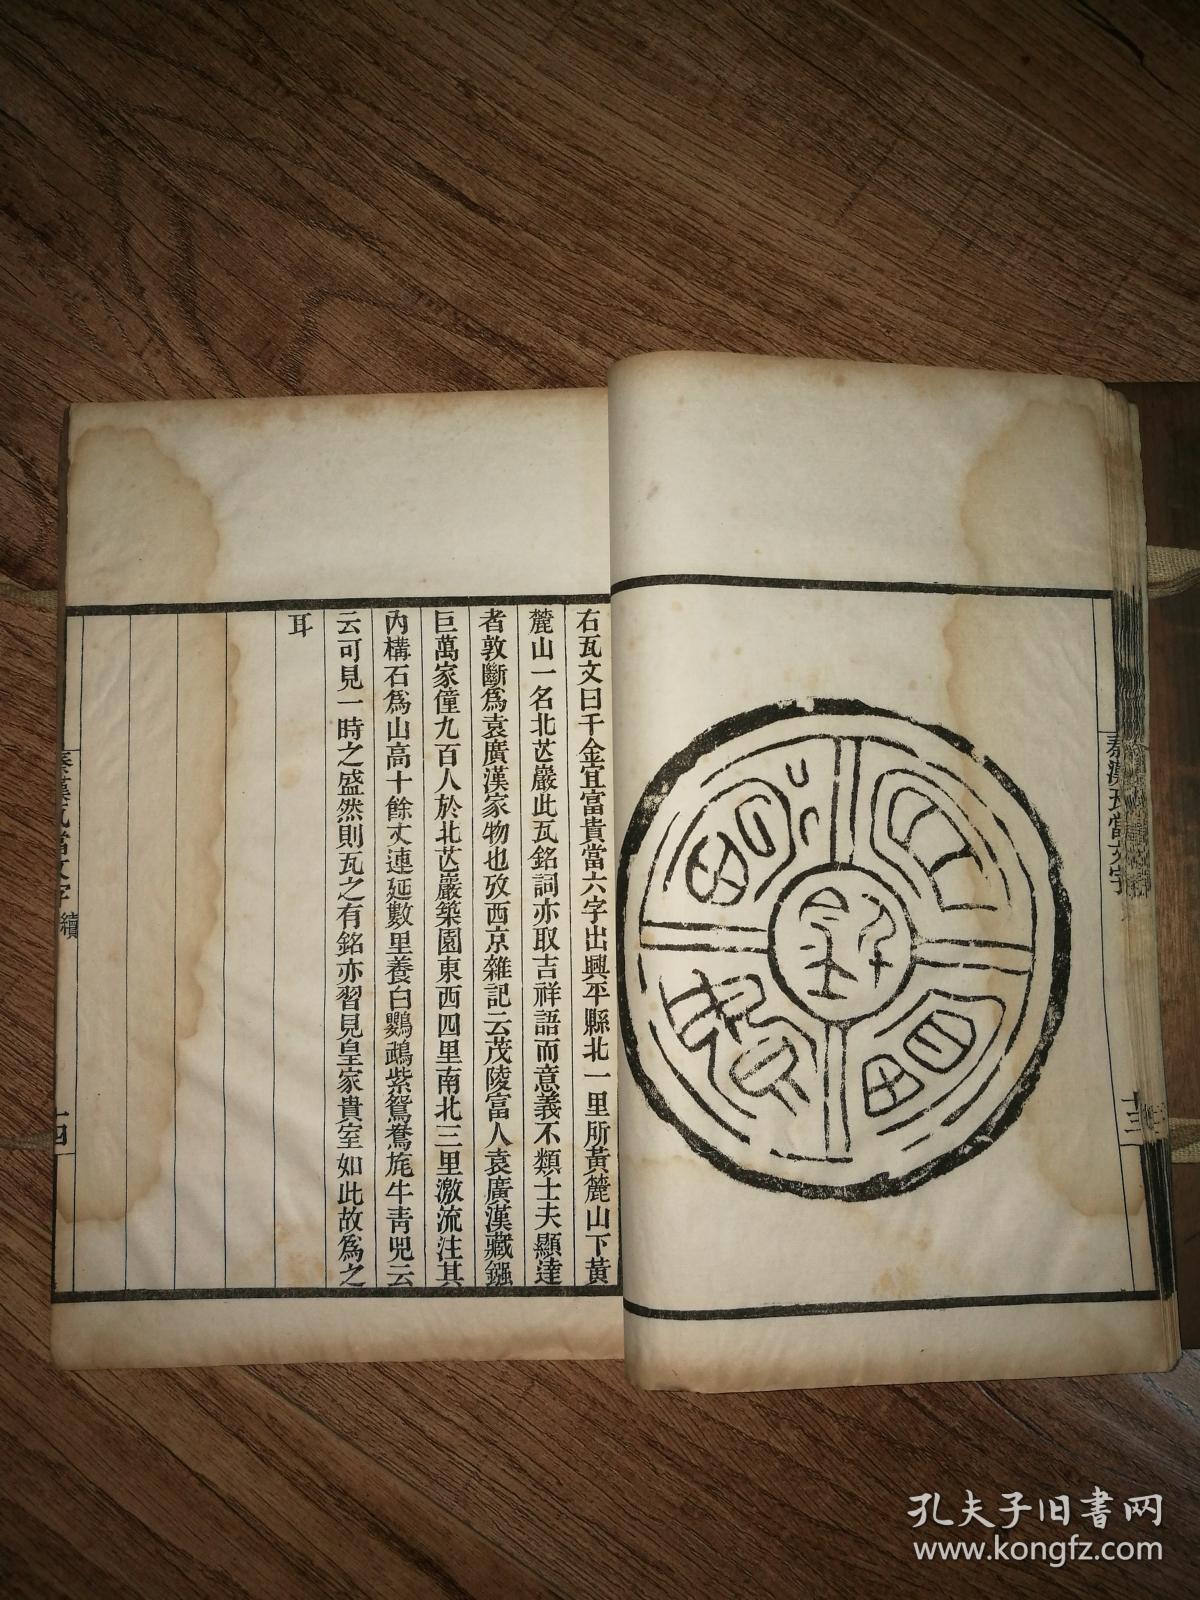 秦漢瓦當文字
十三
右瓦文曰千金宜富貴當六字出興平縣北一里所黃麓山下黃
麓山一名北芒巖此瓦銘詞亦取吉祥語而意義不類士夫顯達
者敦斷爲袁廣漢家物也攷西京雜記云茂陵富人袁廣漢藏鏹
巨萬家僮九百人於北芒巖築園東西四里南北三里激流注其
內構石爲山高十餘丈連延數里養白鸚鵡紫鴛鴦旄牛青兕云
云可見一時之盛然則瓦之有銘亦習見皇家貴室如此故爲之
耳
秦漢瓦當文字 續
十四
孔夫子旧书网
www.kongfz.com